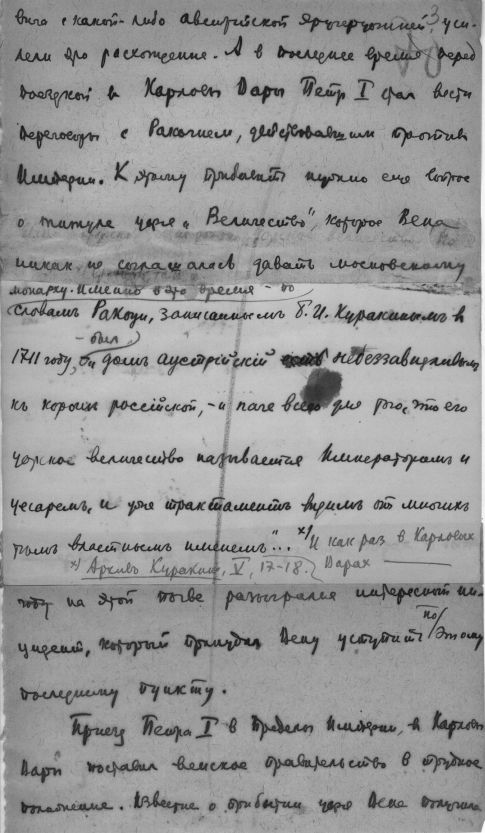 вича с какой-либо австрийской эрцгерцогиней, уси-
лели это расхождение. А в последнее время перед
поездкой в Карловы Вары Петр I стал вести
переговоры с Ракочием, действовавшим против
Империи. К этому прибавить нужно еще вопрос
о титуле царя „Величество", которое Вена
никак не соглашалась давать московскому
монарху. Именно в это время - по
словамъ Ракоци, записаннымъ Б. И. Куракинымъ в
- был
1711 году, домъ аустрійскій небеззавидливымъ
къ короне россійской, - и паче всего для того, что его
царское величество называется Императоромъ и
цесаремъ, и уже трактаментъ видимъ от многихъ
темъ властнымъ именемъ"... х) И как раз в Карловых
х) Архивъ Куракина, V, 17-18. Варах
году на этой почве разыгрался интересный ин-
цидент, который принудил Вену уступить по этому
последнему пункту.
Приезд Петра I в пределы Империи, в Карловы
Вары поставил венское правительство в трудное
положение. Известие о прибытии царя Вена получила